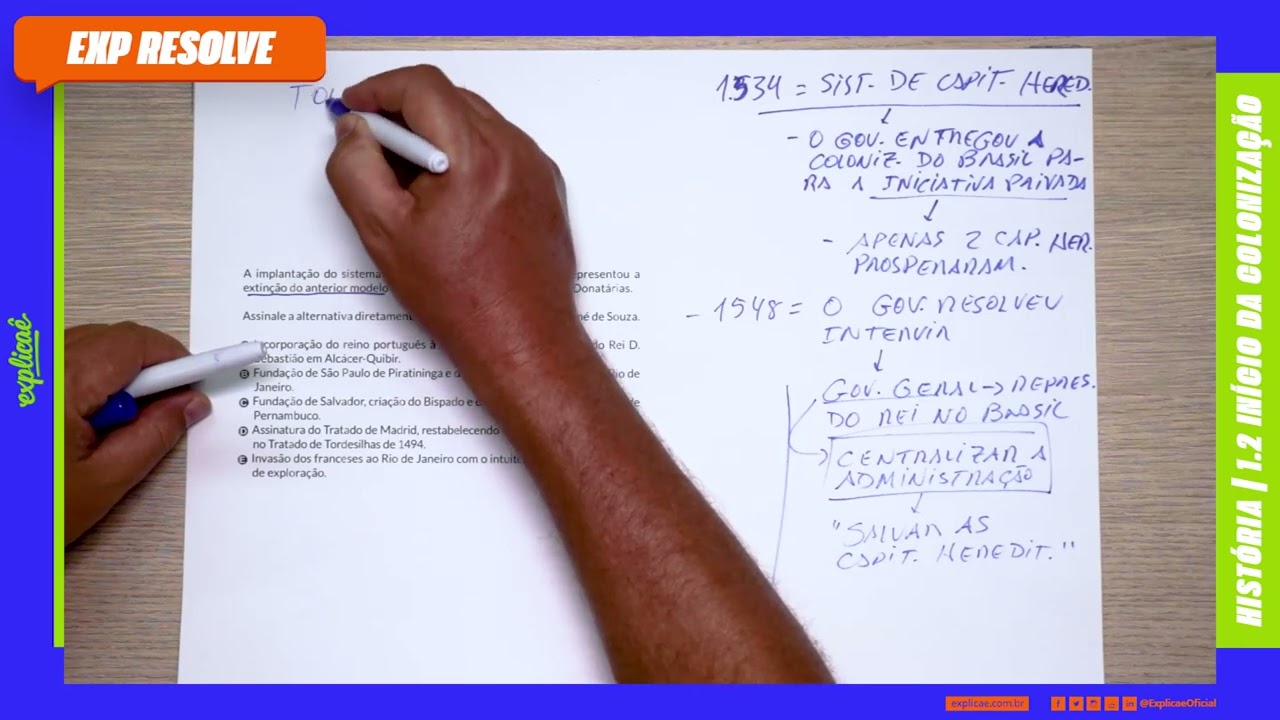 EXP RESOLVE
TO
1534 = SIST. DE CAPIT. HERED.
- O GOV. ENTREGOU A
COLONIZ. DO BRASIL PA-
RA A INICIATIVA PRIVADA
- APENAS 2 CAP. HER.
PROSPERARAM.
- 1548 = O GOV. RESOLVEU
INTERVIR
GOV. GERAL → REPRES.
DO REI NO BRASIL
CENTRALIZAR A
ADMINISTRAÇÃO
"SALVAR AS
CAPIT. HEREDIT."
A implantação do sistema presentou a
extinção do anterior modelo Donatárias.
Assinale a alternativa diretamen né de Souza.
corporação do reino português à do Rei D.
ebastião em Alcácer-Quibir.
B Fundação de São Paulo de Piratininga e Rio de
Janeiro.
C Fundação de Salvador, criação do Bispado e de
Pernambuco.
D Assinatura do Tratado de Madrid, restabelecendo
no Tratado de Tordesilhas de 1494.
E Invasão dos franceses ao Rio de Janeiro com o intuit
de exploração.
explicaê
HISTÓRIA | 1.2 INÍCIO DA COLONIZAÇÃO
explicae.com.br
@ExplicaeOficial